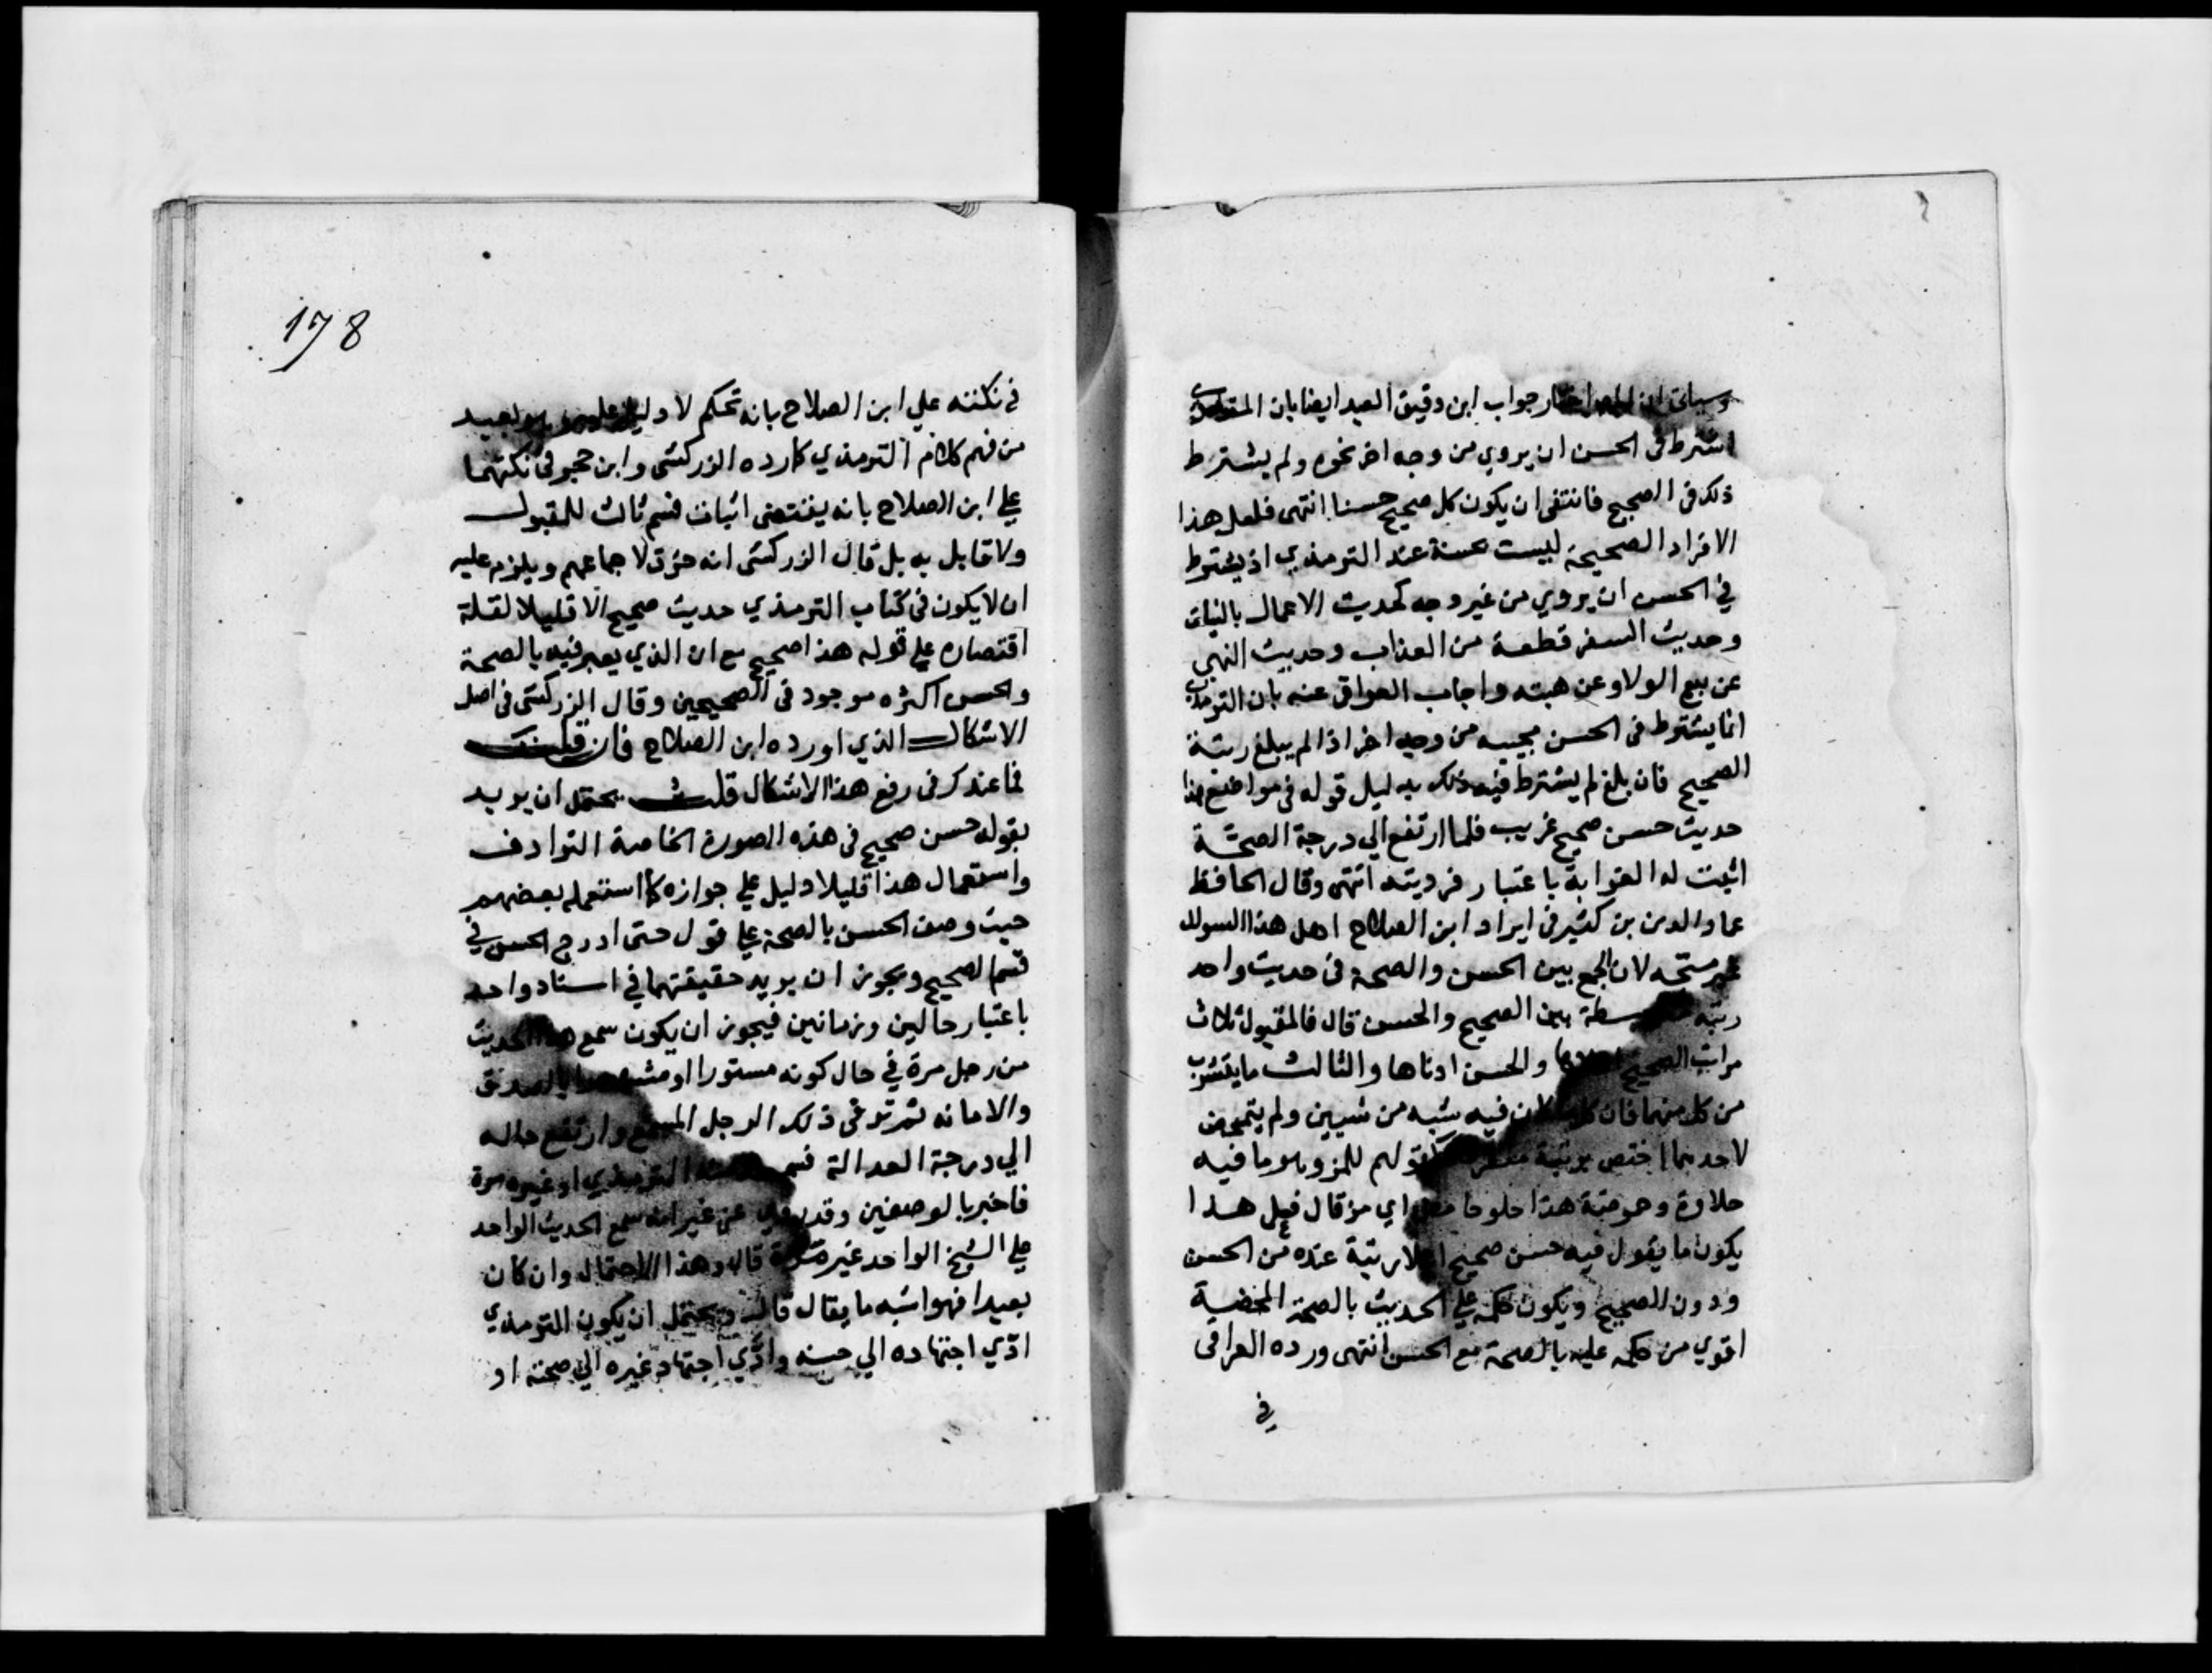 وسياتى ان اختار جواب ابن دقيق العيد ايضا بان الترمذي
اشترط فى الحسن ان يروي من وجه اخر نحوه ولم يشترط
ذلك فى الصحيح فانتفى ان يكون كل صحيح حسنا انتهى فلعل هذا
الافراد الصحيحة ليست بحسنة عند الترمذي اذ يشترط
في الحسن ان يروي من غير وجه كحديث الاعمال بالنيات
وحديث السفر قطعة من العذاب وحديث النهى
عن بيع الولا وعن هبته واجاب العراقى عنه بان الترمذي
انما يشترط فى الحسن مجيبه من وجه اخر اذا لم يبلغ رتبة
الصحيح فان بلغ لم يشترط فيه ذلك بدليل قوله فى مواضع هذا
حديث حسن صحيح غريب فلما ارتفع الي درجة الصحة
اثبت له الغرابة باعتبار فرديته انتهى وقال الحافظ
عماد الدين بن كثير فى ايراد ابن الصلاح اصل هذا السوال
غير متجه لان الجمع بين الحسن والصحة فى حديث واحد
رتبة متوسطة بين الصحيح والحسن قال فالمقبول ثلاث
مراتب الصحيح اعلاها والحسن ادناها والثالث مايتشرب
من كل منهما فان كل ما كان فيه شبه من شيين ولم يتمحض
لاحدهما اختص برتبة كقولهم للمز وهو ما فيه
حلاوة وحموضة هذا حلو حامض اي مز قال فعلى هذا
يكون ما يقول فيه حسن صحيح اعلا رتبة عنده من الحسن
ودون الصحيح ويكون حكمه علي الحديث بالصحة المحضية
اقوي من حكمه عليه بالصحة مع الحسن انتهى ورده العراقى
في
178
فى نكتنه علي ابن الصلاح بانه تحكم لا دليل عليه وهو بعيد
من فهم كلام الترمذي كما رده الزركشى وابن حجر فى نكتهما
علي ابن الصلاح بانه يقتضى اثبات قسم ثالث للمقبول
ولا قايل به بل قال الزركشى انه خرق لاجماعهم ويلزم عليه
ان لا يكون فى كتاب الترمذي حديث صحيح الا قليلا لقلة
اقتصاره علي قوله هذا صحيح مع ان الذي يعبر فيه بالصحة
والحسن اكثره موجود فى الصحيحين وقال الزركشى فى اصل
الاشكال الذي اورده ابن الصلاح فان قلت
فما عندك فى رفع هذا الاشكال قلت يحتمل ان يريد
بقوله حسن صحيح فى هذه الصورة الخاصة الترادف
واستعمال هذا قليلا دليل علي جوازه كما استعمله بعضهم
حيث وصف الحسن بالصحة علي قول حتى ادرج الحسن في
قسم الصحيح ويجوز ان يريد حقيقتهما في اسناد واحد
باعتبار حالين وزمانين فيجوز ان يكون سمع هذا الحديث
من رجل مرة في حال كونه مستورا او مشهورا بالصدق
والامانه ثم ترقى ذلك الرجل المسمع وارتفع حاله
الي درجة العدالة الترمذي او غيره مرة
فاخبر بالوصفين وقد روي عن غير انه سمع الحديث الواحد
علي الشيخ الواحد غير مرة قال وهذا الاحتمال وان كان
بعيدا فهو اشبه ما يقال قال ويحتمل ان يكون الترمذي
ادّي اجتهاده الي حسنه وادّي اجتهاد غيره الي صحته او